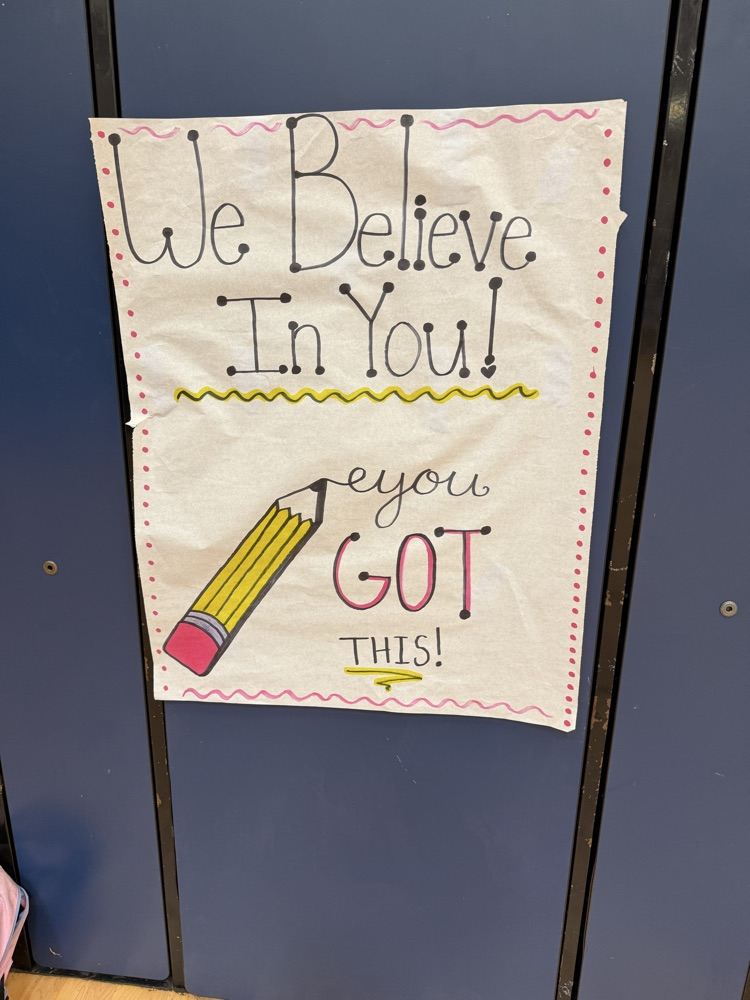 We Believe
In You!
you
GOT
THIS!